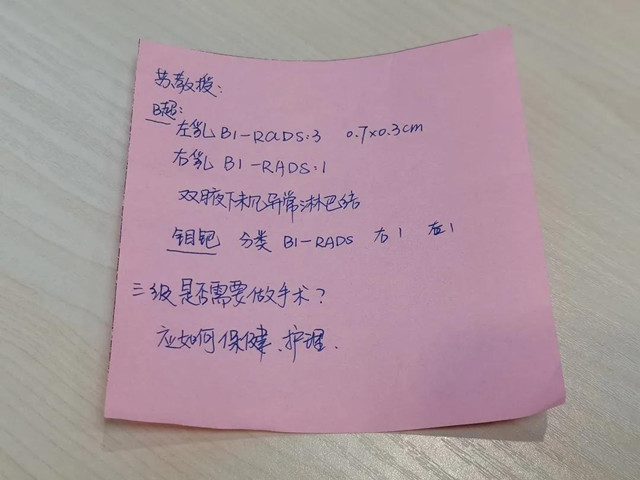 苏教授：
B超：
左乳 BI-RADS：3 0.7×0.3cm
右乳 BI-RADS：1
双腋下未见异常淋巴结
钼钯 分类 BI-RADS 右1 左1
三级是否需要做手术？
应如何保健、护理.